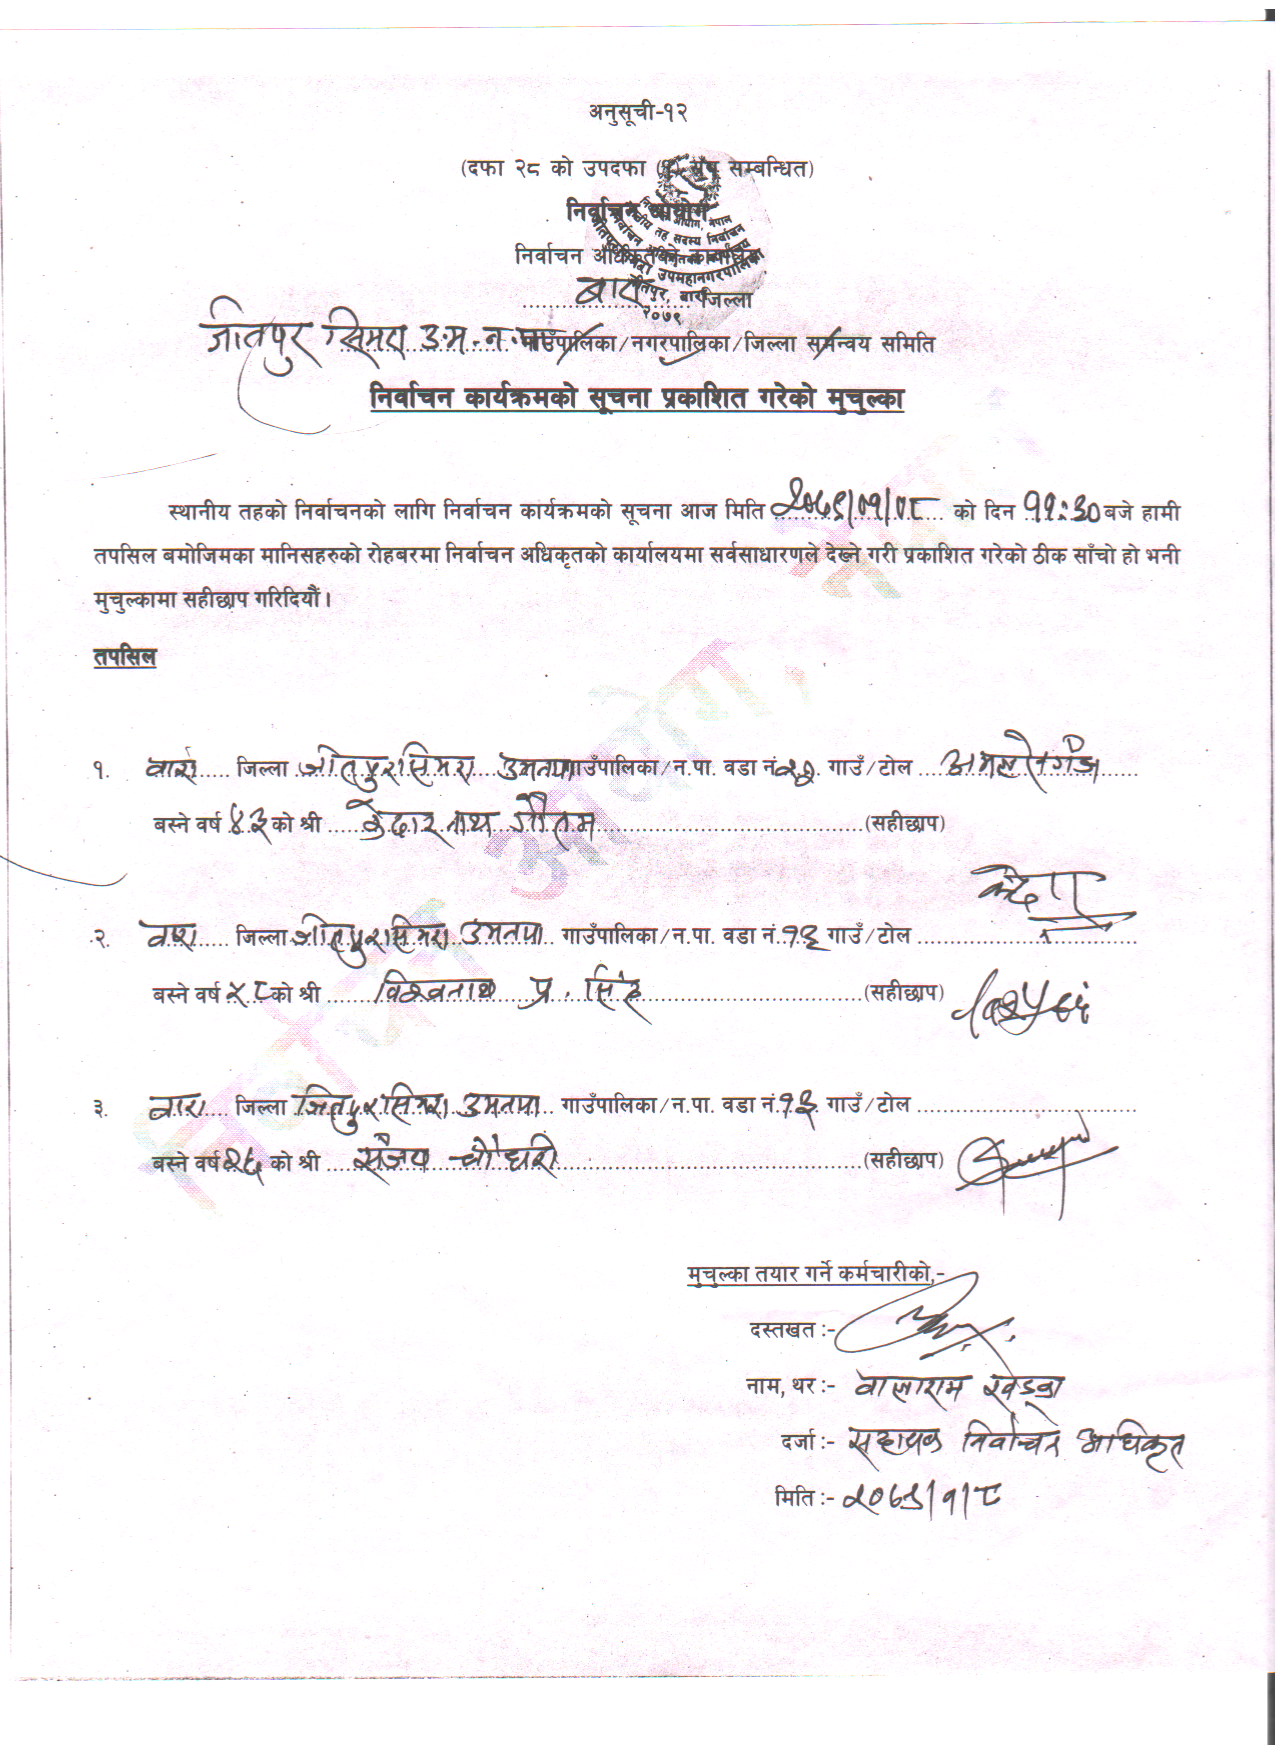 अनुसूची-१२
(दफा २८ को उपदफा सँग सम्बन्धित)
निर्वाचन आयोग
निर्वाचन अधिकृतको कार्यालय
बारा जिल्ला
जीतपुर सिमरा उ.म.न.पा. गाउँपालिका/नगरपालिका/जिल्ला समन्वय समिति
निर्वाचन कार्यक्रमको सूचना प्रकाशित गरेको मुचुल्का
स्थानीय तहको निर्वाचनको लागि निर्वाचन कार्यक्रमको सूचना आज मिति २०७९/०१/०८ को दिन ११:३० बजे हामी
तपसिल बमोजिमका मानिसहरुको रोहबरमा निर्वाचन अधिकृतको कार्यालयमा सर्वसाधारणले देख्ने गरी प्रकाशित गरेको ठीक साँचो हो भनी
मुचुल्कामा सहीछाप गरिदियौं।
तपसिल
१. बारा जिल्ला जीतपुरसिमरा उमनपा गाउँपालिका/न.पा. वडा नं. गाउँ/टोल अमलेखगंज
बस्ने वर्ष ४३ को श्री केदारनाथ गौतम (सहीछाप)
२. बारा जिल्ला जीतपुरसिमरा उमनपा गाउँपालिका/न.पा. वडा नं. १३ गाउँ/टोल
बस्ने वर्ष ५८ को श्री विश्वनाथ प्र. सिंह (सहीछाप)
३. बारा जिल्ला जितपुरसिमरा उमनपा गाउँपालिका/न.पा. वडा नं. १३ गाउँ/टोल
बस्ने वर्ष २६ को श्री संजय चौधरी (सहीछाप)
मुचुल्का तयार गर्ने कर्मचारीको,-
दस्तखत :-
नाम, थर :- बालाराम खड्का
दर्जा :- सहायक निर्वाचन अधिकृत
मिति :- २०७९/१/८
निर्वाचन आयोग, नेपाल